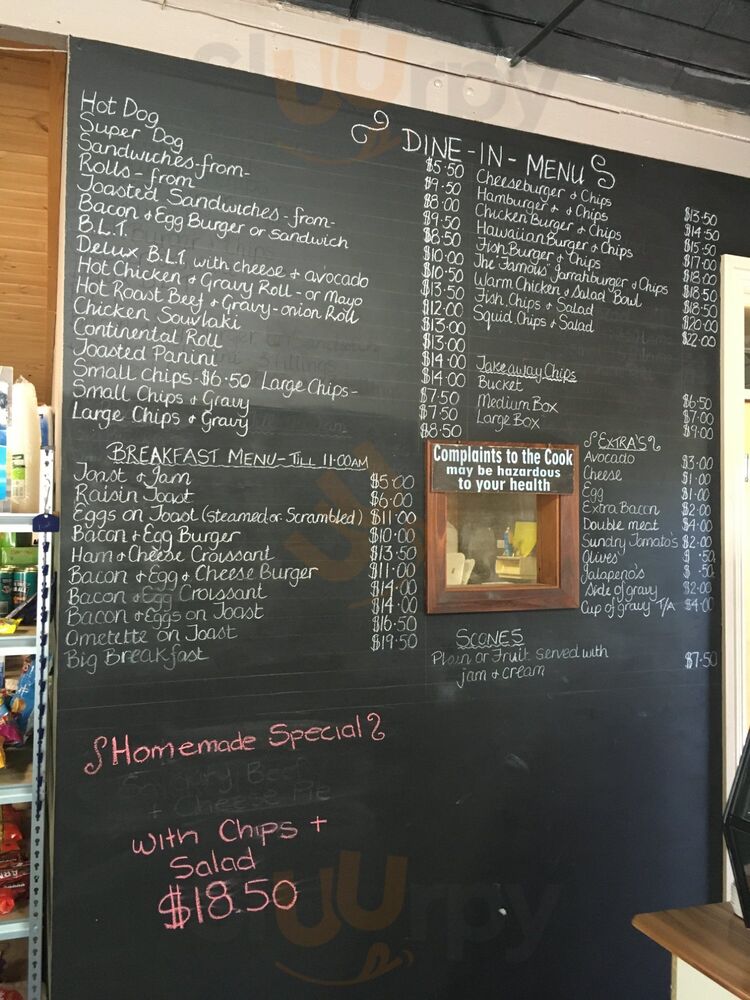 DINE-IN-MENU
Hot Dog $5.50
Super Dog $9.50
Sandwiches-from- $8.00
Rolls-from $9.50
Toasted Sandwiches-from- $8.50
Bacon & Egg Burger or Sandwich $10.00
B.L.T. $10.50
Delux B.L.T with cheese & avocado $13.50
Hot Chicken & Gravy Roll-or Mayo $12.00
Hot Roast Beef & Gravy-onion Roll $13.00
Chicken Souvlaki $13.00
Continental Roll $14.00
Toasted Panini $14.00
Small chips-$6.50 Large Chips- $7.50
Small Chips & Gravy $7.50
Large Chips & Gravy $8.50
Cheeseburger & Chips $13.50
Hamburger & & Chips $14.50
Chicken Burger & Chips $15.50
Hawaiian Burger & Chips $17.00
Fish Burger & Chips $18.00
The 'Famous' Jarrahburger & Chips $18.50
Warm Chicken & Salad Bowl $18.50
Fish, Chips & Salad $20.00
Squid, Chips & Salad $22.00
Takeaway Chips
Bucket $6.50
Medium Box $7.00
Large Box $9.00
BREAKFAST MENU-TILL 11:00AM
Toast & Jam $5.00
Raisin Toast $6.00
Eggs on Toast (Steamed or Scrambled) $11.00
Bacon & Egg Burger $10.00
Ham & Cheese Croissant $13.50
Bacon & Egg & Cheese Burger $11.00
Bacon & Egg Croissant $14.00
Bacon & Eggs on Toast $14.00
Omelette on Toast $16.50
Big Breakfast $19.50
Complaints to the Cook
may be hazardous
to your health
EXTRA'S
Avocado $3.00
Cheese $1.00
Egg $1.00
Extra Bacon $2.00
Double meat $4.00
Sundry Tomato's $2.00
Olives $.50
Jalapeno's $.50
Side of gravy $2.00
Cup of gravy T/A $4.00
SCONES
Plain or Fruit served with $7.50
jam & cream
Homemade Special
Beef
& Cheese Pie
with Chips +
Salad
$18.50
slUUrpy
slUUrpy